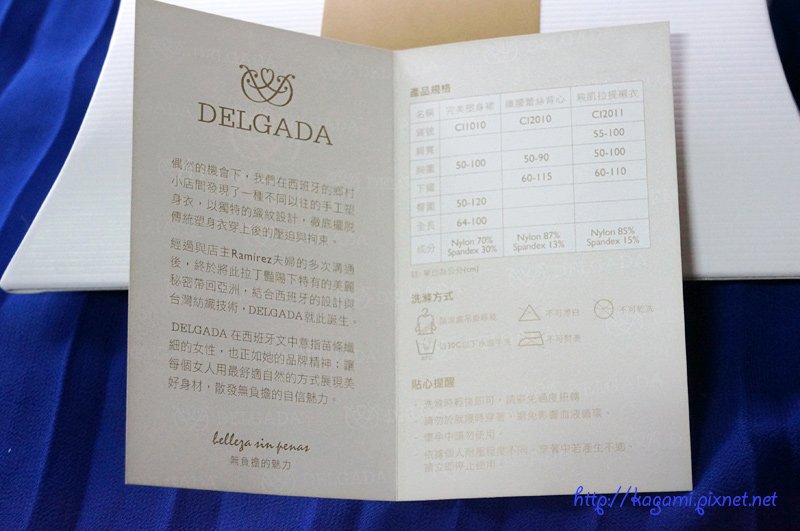 DELGADA
偶然的機會下，我們在西班牙的鄉村
小店間發現了一種不同以往的手工塑
身衣，以獨特的織紋設計，徹底擺脫
傳統塑身衣穿上後的壓迫與拘束。
經過與店主Ramirez夫婦的多次溝通
後，終於將此拉丁豔陽下特有的美麗
秘密帶回亞洲，結合西班牙的設計與
台灣紡織技術，DELGADA就此誕生。
DELGADA 在西班牙文中意指苗條纖
細的女性，也正如她的品牌精神；讓
每個女人用最舒適自然的方式展現美
好身材，散發無負擔的自信魅力。
belleza sin penas
無負擔的魅力
產品規格
名稱 完美塑身裙 纖腰蕾絲背心 美肌拉提襯衣
貨號 C11010 C12010 C12011
肩寬 55-100
胸圍 50-100 50-90 50-100
下襬 60-115 60-110
臀圍 50-120
全長 64-100
成分 Nylon 70% Spandex 30% Nylon 87% Spandex 13% Nylon 85% Spandex 15%
註: 單位為公分(cm)
洗滌方式
陰涼處吊掛晾乾 不可漂白 不可乾洗
以30C以下水溫手洗 不可熨燙
貼心提醒
- 洗滌時輕擰即可，請避免過度扭轉。
- 請勿於就寢時穿著，避免影響血液循環。
- 懷孕中請勿使用。
- 依據個人耐壓程度不同，穿著中若產生不適，
請立即停止使用。
http://kagami.pixnet.net